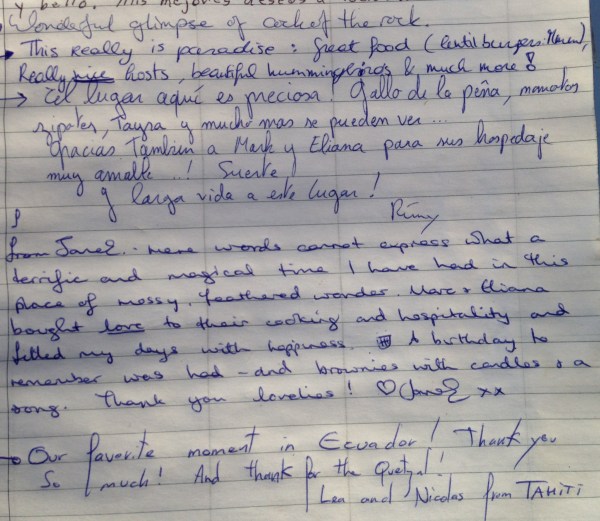 y bello. Mis mejores deseos a
Wonderful glimpse of cock of the rock.
This Really is paradise: great food (lentil burgers
Really nice hosts, beautiful hummingbirds & much more!
→ El lugar aquí es preciosa! Gallo de la peña,
Tayra y mucho mas se pueden ver...
Gracias Tambien a Mark y Eliana para sus hospedaje
muy amable..! Suerte!
y larga vida a este lugar!
Rémy
from Janel.. mere words cannot express what a
terrific and magical time I have had in this
place of mossy, feathered wonder. Marc + Eliana
bought love to their cooking and hospitality and
filled my days with happiness. A birthday to
remember was had - and brownies with candles & a
song. Thank you lovelies! ♡ Janel xx
Our favorite moment in Ecuador! Thank you
So much! And thank for the Quetzal!
Lea and Nicolas from TAHITI